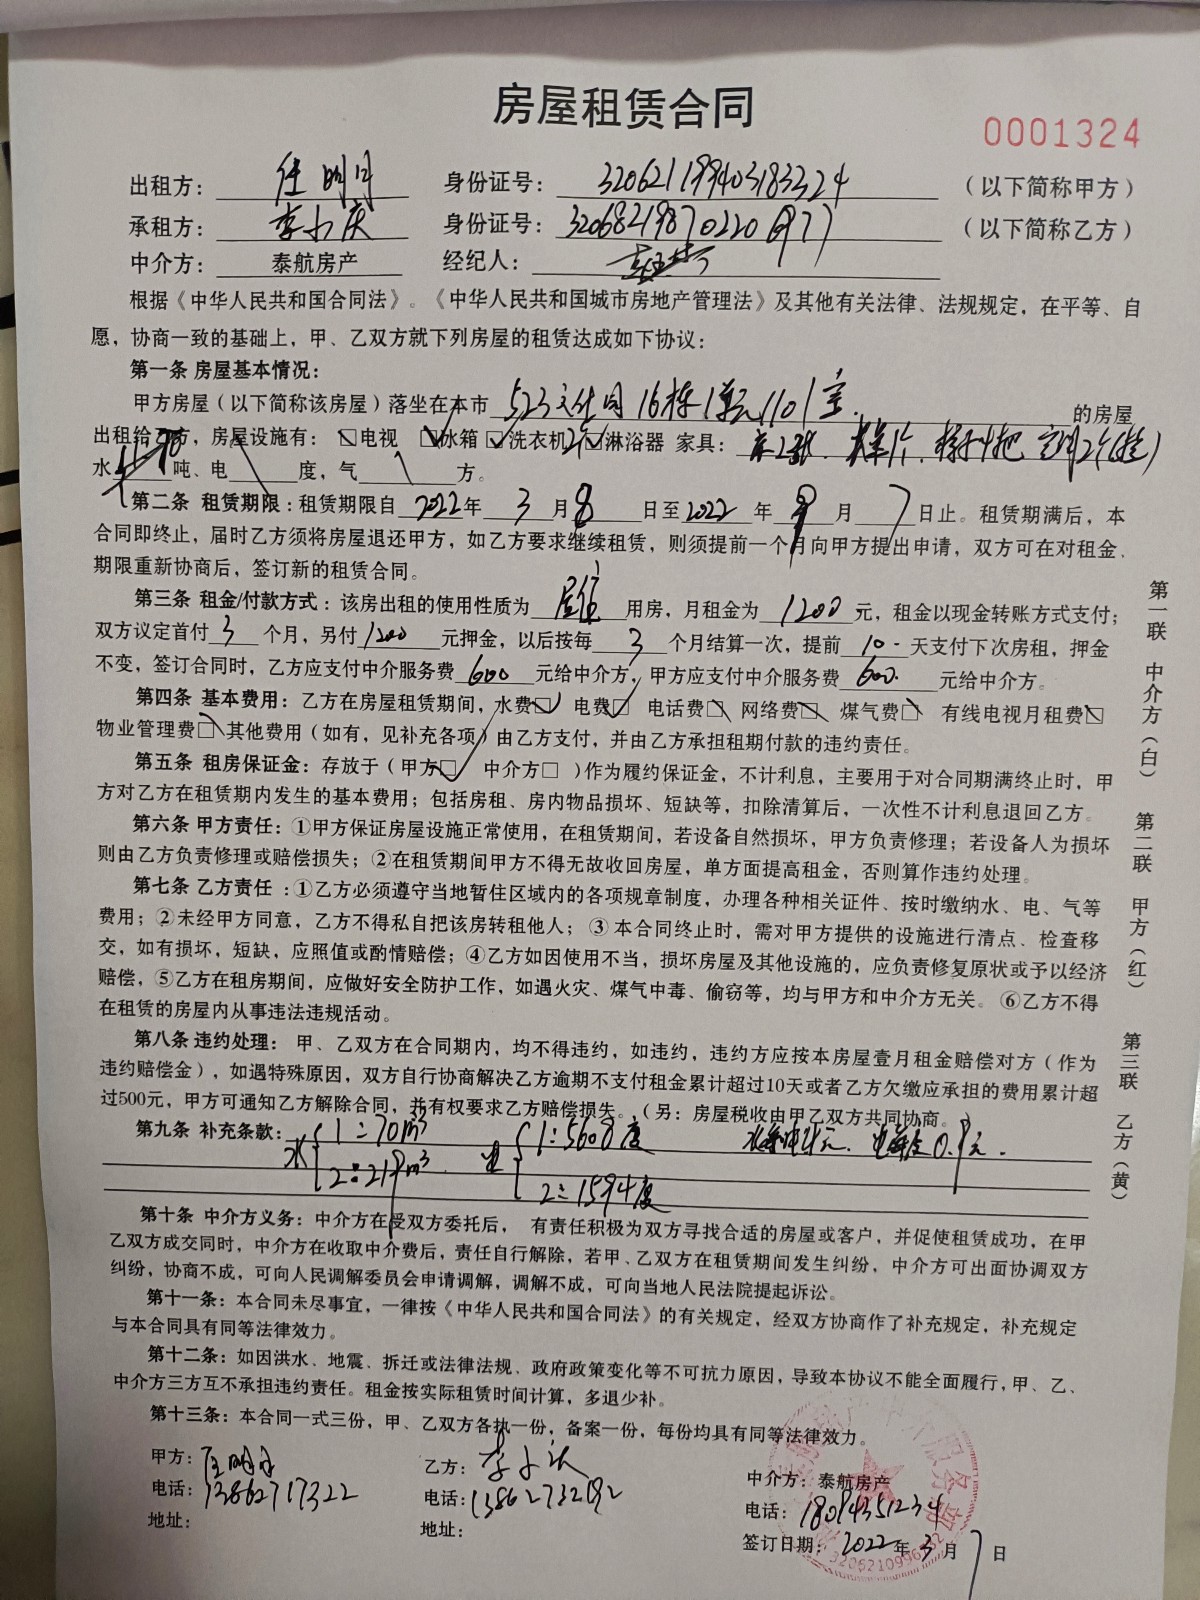 房屋租赁合同
0001324
出租方： 任明月 身份证号： 320621199403183324 （以下简称甲方）
承租方： 李小庆 身份证号： 3206821987022077 （以下简称乙方）
中介方： 泰航房产 经纪人：
根据《中华人民共和国合同法》。《中华人民共和国城市房地产管理法》及其他有关法律、法规规定，在平等、自
愿，协商一致的基础上，甲、乙双方就下列房屋的租赁达成如下协议：
第一条 房屋基本情况：
甲方房屋（以下简称该房屋）落坐在本市 523文化园16栋1单元1101室 的房屋
出租给乙方，房屋设施有： 电视 冰箱 洗衣机 淋浴器 家具： 床2张
水 吨、电 度，气 方。
第二条 租赁期限：租赁期限自 2022 年 3 月 8 日至 2022 年 9 月 7 日止。租赁期满后，本
合同即终止，届时乙方须将房屋退还甲方，如乙方要求继续租赁，则须提前一个月向甲方提出申请，双方可在对租金、
期限重新协商后，签订新的租赁合同。
第三条 租金/付款方式：该房出租的使用性质为 居住 用房，月租金为 1200 元，租金以现金转账方式支付；
双方议定首付 3 个月，另付 1200 元押金，以后按每 3 个月结算一次，提前 10 天支付下次房租，押金
不变，签订合同时，乙方应支付中介服务费 600 元给中介方，甲方应支付中介服务费 600 元给中介方。
第四条 基本费用：乙方在房屋租赁期间，水费☑ 电费☑ 电话费□ 网络费□ 煤气费□ 有线电视月租费□
物业管理费□ 其他费用（如有，见补充各项）由乙方支付，并由乙方承担租期付款的违约责任。
第五条 租房保证金：存放于（甲方☑ 中介方□ ）作为履约保证金，不计利息，主要用于对合同期满终止时，甲
方对乙方在租赁期内发生的基本费用；包括房租、房内物品损坏、短缺等，扣除清算后，一次性不计利息退回乙方。
第六条 甲方责任：①甲方保证房屋设施正常使用，在租赁期间，若设备自然损坏，甲方负责修理；若设备人为损坏
则由乙方负责修理或赔偿损失；②在租赁期间甲方不得无故收回房屋，单方面提高租金，否则算作违约处理。
第七条 乙方责任 ：①乙方必须遵守当地暂住区域内的各项规章制度，办理各种相关证件、按时缴纳水、电、气等
费用；②未经甲方同意，乙方不得私自把该房转租他人；③本合同终止时，需对甲方提供的设施进行清点、检查移
交，如有损坏，短缺，应照值或酌情赔偿；④乙方如因使用不当，损坏房屋及其他设施的，应负责修复原状或予以经济
赔偿，⑤乙方在租房期间，应做好安全防护工作，如遇火灾、煤气中毒、偷窃等，均与甲方和中介方无关。⑥乙方不得
在租赁的房屋内从事违法违规活动。
第八条 违约处理： 甲、乙双方在合同期内，均不得违约，如违约，违约方应按本房屋壹月租金赔偿对方（作为
违约赔偿金），如遇特殊原因，双方自行协商解决乙方逾期不支付租金累计超过10天或者乙方欠缴应承担的费用累计超
过500元，甲方可通知乙方解除合同，并有权要求乙方赔偿损失。（另：房屋税收由甲乙双方共同协商。
第九条 补充条款： 水 1：70m³ 电 1：5608度
2：219m³ 2：1594度
第十条 中介方义务：中介方在受双方委托后， 有责任积极为双方寻找合适的房屋或客户，并促使租赁成功，在甲
乙双方成交同时，中介方在收取中介费后，责任自行解除，若甲、乙双方在租赁期间发生纠纷，中介方可出面协调双方
纠纷，协商不成，可向人民调解委员会申请调解，调解不成，可向当地人民法院提起诉讼。
第十一条：本合同未尽事宜，一律按《中华人民共和国合同法》的有关规定，经双方协商作了补充规定，补充规定
与本合同具有同等法律效力。
第十二条：如因洪水、地震、拆迁或法律法规、政府政策变化等不可抗力原因，导致本协议不能全面履行，甲、乙、
中介方三方互不承担违约责任。租金按实际租赁时间计算，多退少补。
第十三条：本合同一式三份，甲、乙双方各执一份，备案一份，每份均具有同等法律效力。
甲方： 任明月 乙方： 李小庆 中介方：泰航房产
电话： 13862717322 电话： 电话： 18094351234
地址： 地址： 签订日期： 2022 年 3 月 7 日
第一联 中介方（白） 第二联 甲方（红） 第三联 乙方（黄）